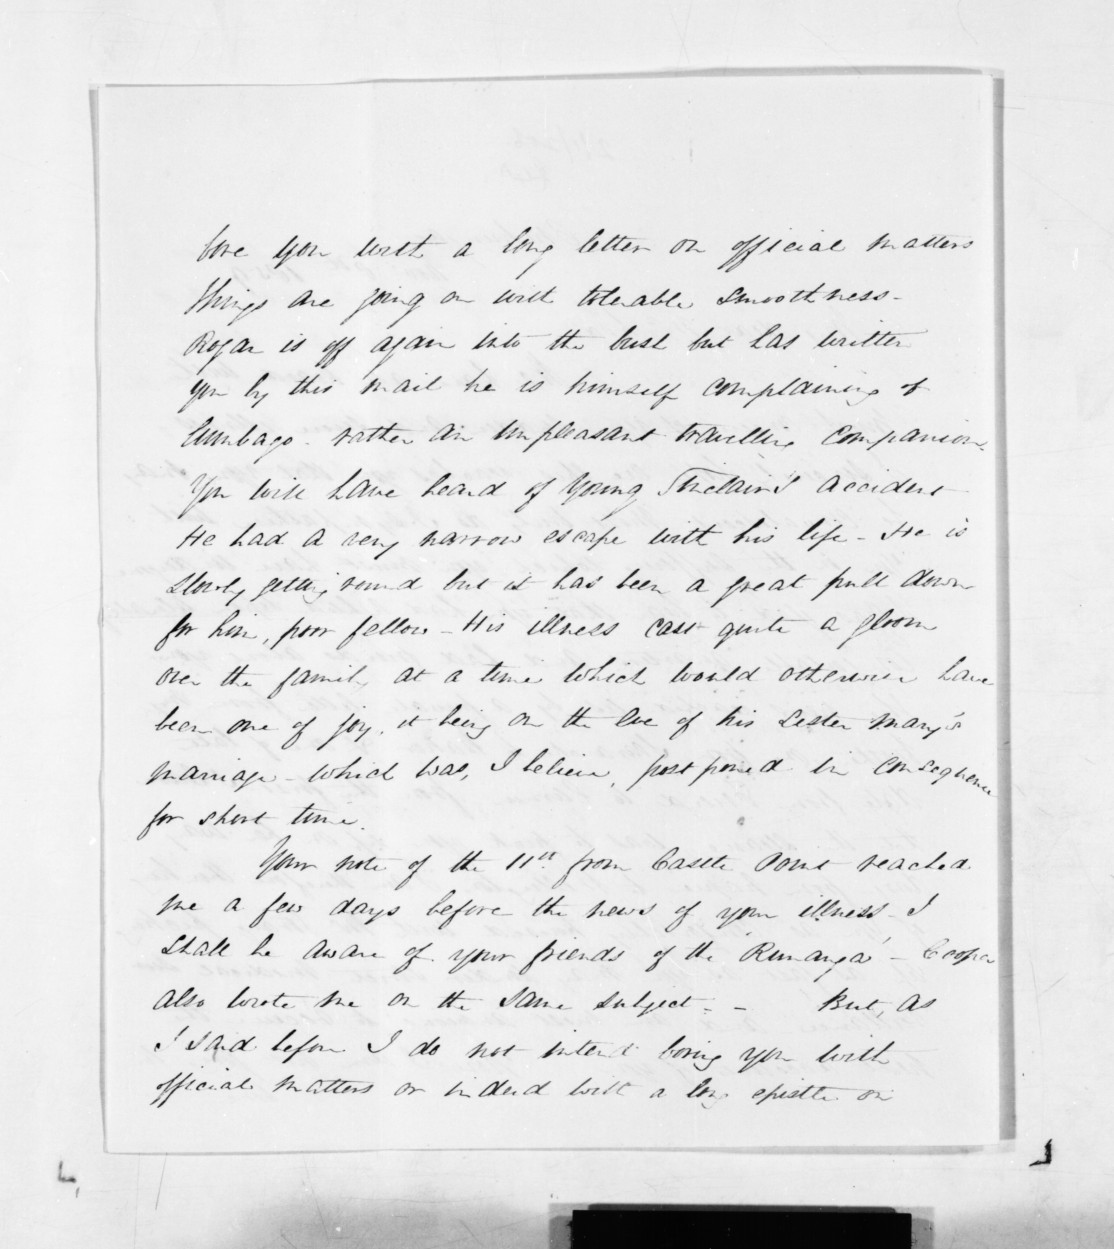 bore you with a long letter on official matters
things are going on with tolerable smoothness -
Rogan is off again into the bush but has written
you by this mail he is himself complaining of
lumbago - rather an unpleasant travelling companion.
You will have heard of young Sinclair's accident
He had a very narrow escape with his life - He is
slowly getting round but it has been a great pull down
for him, poor fellow - His illness cast quite a gloom
over the family at a time which would otherwise have
been one of joy, it being on the eve of his Sister Mary's
marriage - which was, I believe, postponed in consequence
for short time.
Your note of the 11th from Castle Point reached
me a few days before the news of your illness - I
shall be aware of your friends of the 'Runanga' - Cooper
also wrote me on the same subject. - But, as
I said before I do not intend boring you with
official matters or indeed with a long epistle on